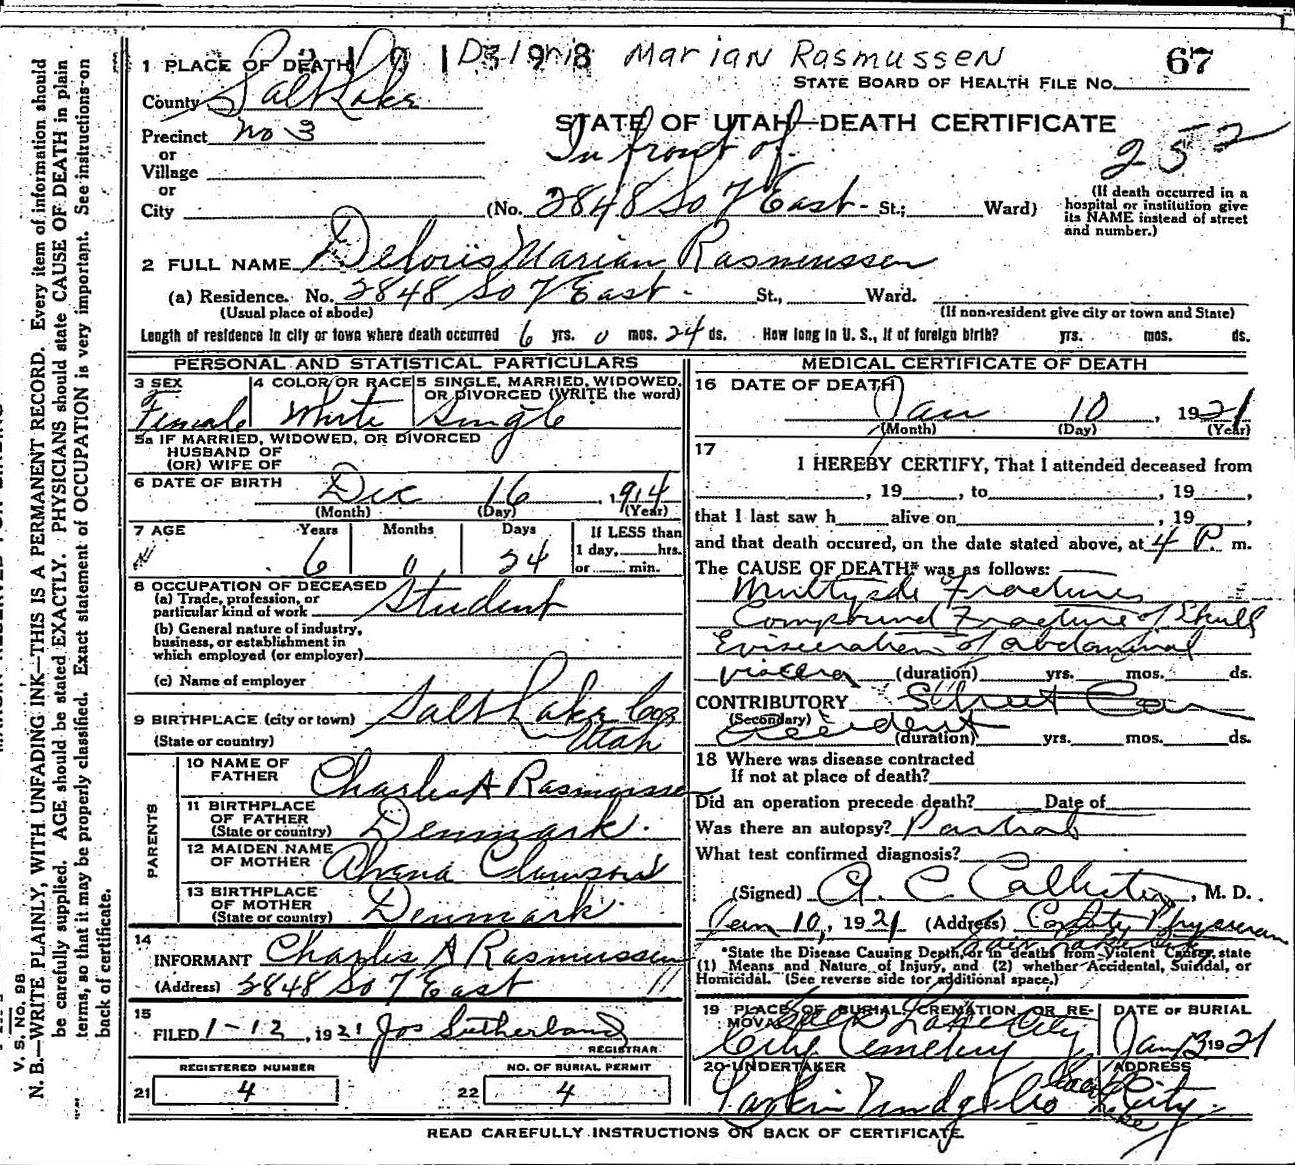 Marian Rasmussen 67
1 PLACE OF DEATH
STATE BOARD OF HEALTH FILE No.
County Salt Lake
Precinct No 3
STATE OF UTAH—DEATH CERTIFICATE
or
Village
In front of
252
or
City (No. 2848 So 7 East St.; Ward)
(If death occurred in a hospital or institution give its NAME instead of street and number.)
2 FULL NAME Deloris Marian Rasmussen
(a) Residence. No. 2848 So 7 East St., Ward.
(Usual place of abode) (If non-resident give city or town and State)
Length of residence in city or town where death occurred 6 yrs. 0 mos. 24 ds. How long in U. S., if of foreign birth? yrs. mos. ds.
PERSONAL AND STATISTICAL PARTICULARS
3 SEX 4 COLOR OR RACE 5 SINGLE, MARRIED, WIDOWED,
OR DIVORCED (WRITE the word)
Female White Single
5a IF MARRIED, WIDOWED, OR DIVORCED
HUSBAND OF
(OR) WIFE OF
6 DATE OF BIRTH Dec 16, 1914
(Month) (Day) (Year)
7 AGE Years Months Days If LESS than
1 day, hrs.
6 0 24 or min.
8 OCCUPATION OF DECEASED
(a) Trade, profession, or
particular kind of work Student
(b) General nature of industry,
business, or establishment in
which employed (or employer)
(c) Name of employer
9 BIRTHPLACE (city or town) Salt Lake Co
(State or country) Utah
PARENTS
10 NAME OF
FATHER Charles A Rasmussen
11 BIRTHPLACE
OF FATHER
(State or country) Denmark
12 MAIDEN NAME
OF MOTHER
13 BIRTHPLACE
OF MOTHER
(State or country) Denmark
14
INFORMANT Charles A Rasmussen
(Address) 2848 So 7 East
15
FILED 1-12, 1921 Jos Sutherland
REGISTRAR
REGISTERED NUMBER NO. OF BURIAL PERMIT
21 4 22 4
MEDICAL CERTIFICATE OF DEATH
16 DATE OF DEATH
Jan 10, 1921
(Month) (Day) (Year)
17
I HEREBY CERTIFY, That I attended deceased from
, 19 , to , 19 ,
that I last saw h alive on , 19 ,
and that death occured, on the date stated above, at 4 P. m.
The CAUSE OF DEATH* was as follows:
Multiple Fractures
Compound Fracture of Skull
Evisceration of abdominal
viscera (duration) yrs. mos. ds.
CONTRIBUTORY Street Car
(Secondary)
accident (duration) yrs. mos. ds.
18 Where was disease contracted
If not at place of death?
Did an operation precede death? Date of
Was there an autopsy? Partial
What test confirmed diagnosis?
(Signed) A. C. Callister, M. D.
Jan 10, 1921 (Address) County Physician
Salt Lake City
*State the Disease Causing Death, or in deaths from Violent Causes, state
(1) Means and Nature of Injury, and (2) whether Accidental, Suicidal, or
Homicidal. (See reverse side for additional space.)
19 PLACE OF BURIAL, CREMATION, OR RE-
MOVAL Salt Lake City
City Cemetery
DATE OF BURIAL
Jan 13 1921
20 UNDERTAKER ADDRESS
Larkin Undg Co Salt Lake City
READ CAREFULLY INSTRUCTIONS ON BACK OF CERTIFICATE.
V. S. No. 88
N. B.—WRITE PLAINLY, WITH UNFADING INK—THIS IS A PERMANENT RECORD. Every item of information should
be carefully supplied. AGE should be stated EXACTLY. PHYSICIANS should state CAUSE OF DEATH in plain
terms, so that it may be properly classified. Exact statement of OCCUPATION is very important. See instructions on
back of certificate.